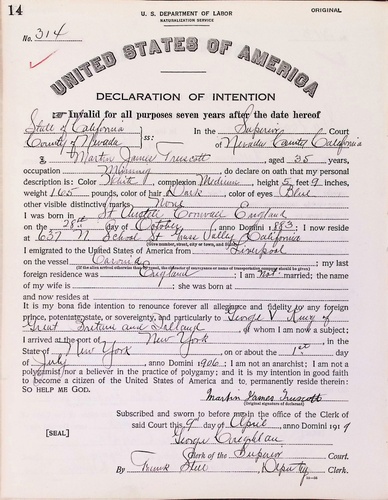 14
U. S. DEPARTMENT OF LABOR
NATURALIZATION SERVICE
ORIGINAL
No. 314
UNITED STATES OF AMERICA
DECLARATION OF INTENTION
Invalid for all purposes seven years after the date hereof
State of California
County of Nevada ss: In the Superior Court
of Nevada County California
I, Martin James Truscott, aged 35 years,
occupation Mining, do declare on oath that my personal
description is: Color White, complexion Medium, height 5 feet 9 inches,
weight 165 pounds, color of hair Dark, color of eyes Blue
other visible distinctive marks None
I was born in St Austell Cornwall England
on the 28th day of October, anno Domini 1883; I now reside
at 637 N School St Grass Valley, California
(Give number, street, city or town, and State.)
I emigrated to the United States of America from Liverpool
on the vessel Caronia; my last
(If the alien arrived otherwise than by vessel, the character of conveyance or name of transportation company should be given.)
foreign residence was England; I am not married; the name
of my wife is; she was born at
and now resides at
It is my bona fide intention to renounce forever all allegiance and fidelity to any foreign
prince, potentate, state, or sovereignty, and particularly to George V King of
Great Britain and Ireland, of whom I am now a subject;
I arrived at the port of New York, in the
State of New York, on or about the 1st day
of July, anno Domini 1906; I am not an anarchist; I am not a
polygamist nor a believer in the practice of polygamy; and it is my intention in good faith
to become a citizen of the United States of America and to permanently reside therein:
SO HELP ME GOD.
Martin James Truscott
(Original signature of declarant.)
Subscribed and sworn to before me in the office of the Clerk of
said Court this 9th day of April, anno Domini 1919
[SEAL]
George
Clerk of the Superior Court.
By Deputy Clerk.